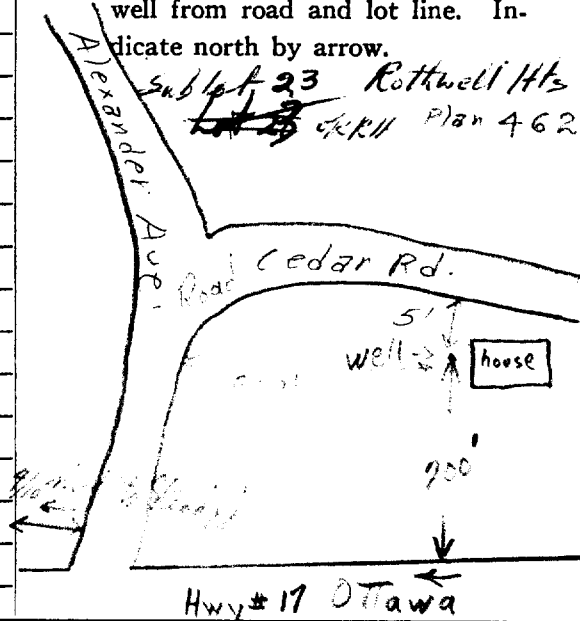 well from road and lot line. In-
dicate north by arrow.
Sublot 23 Rothwell Hts
Plan 462
Alexander Ave.
Road Cedar Rd.
5'
well→
house
Hwy # 17 Ottawa